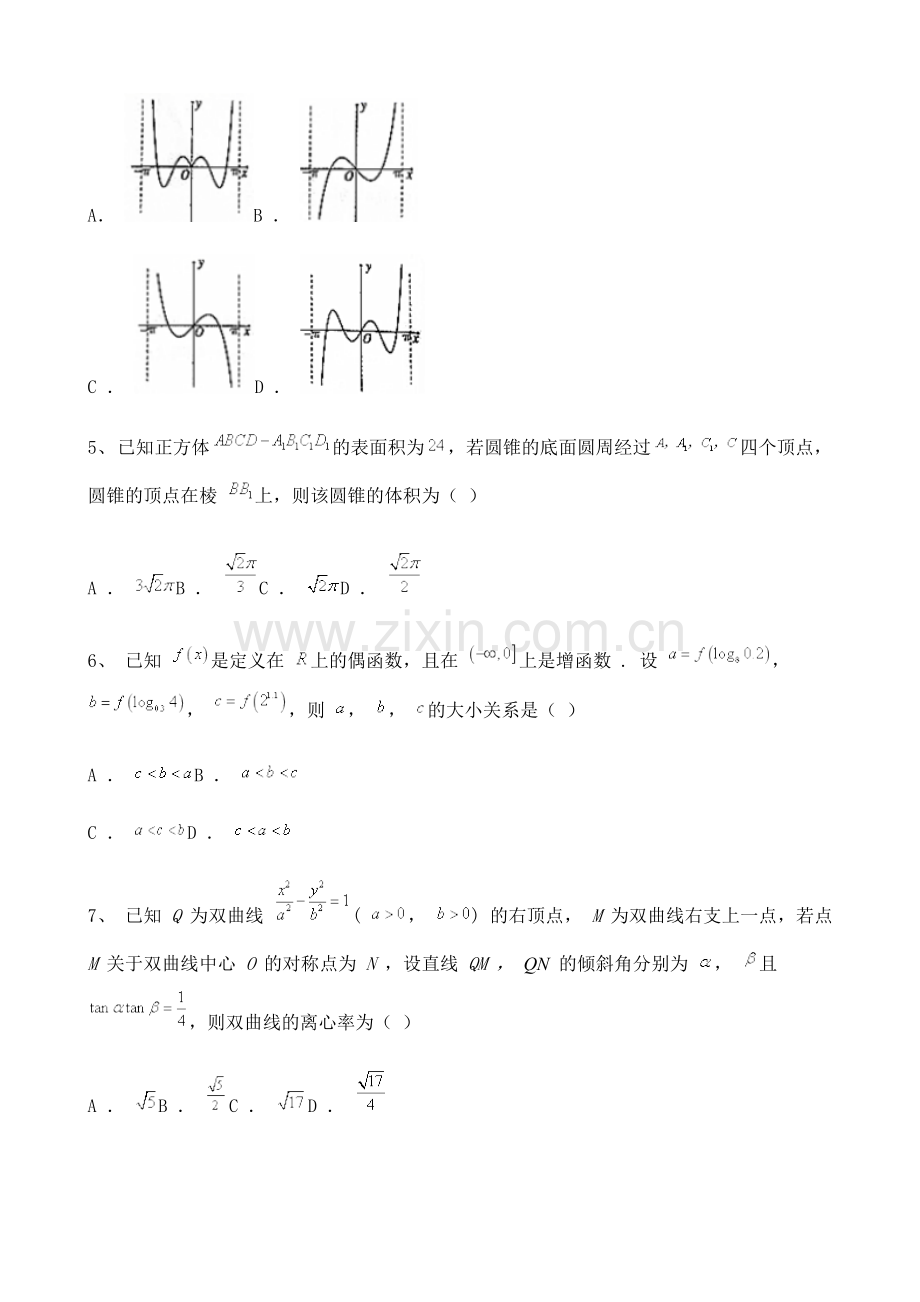 y
-π O π x
y
-π O π x
A． B ．
y
-π O π x
y
-π O π x
C ． D ．
5、已知正方体 ABCD-A₁B₁C₁D₁ 的表面积为 24 ，若圆锥的底面圆周经过 A，A₁，C₁，C 四个顶点，
圆锥的顶点在棱 BB₁ 上，则该圆锥的体积为（ ）
A ． 3√2π B ． √2π/3 C ． √2π D ． √2π/2
www.zixin.com.cn
6、 已知 f(x) 是定义在 R 上的偶函数，且在 (-∞,0] 上是增函数 ．设 a=f(log₈0.2)，
b=f(log₀.₃4)， c=f(2^1.1)，则 a， b， c 的大小关系是（ ）
A ． c<b<a B ． a<b<c
C ． a<c<b D ． c<a<b
7、 已知 Q 为双曲线 x²/a²-y²/b²=1 ( a>0， b>0) 的右顶点， M 为双曲线右支上一点，若点
M 关于双曲线中心 O 的对称点为 N ，设直线 QM ， QN 的倾斜角分别为 α， β 且
tanαtanβ=1/4，则双曲线的离心率为（ ）
A ． √5 B ． √5/2 C ． √17 D ． √17/4